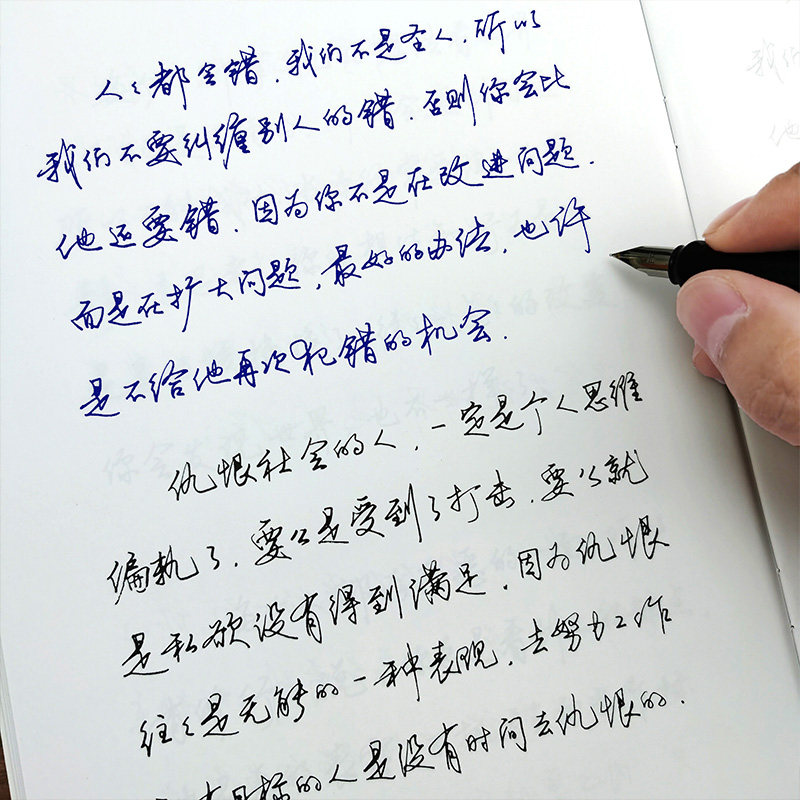 人々都会错，我们不是圣人，所以
我们不要纠缠别人的错，否则你会比
他还要错，因为你不是在改进问题，
而是在扩大问题，最好的办法，也许
是不给他再次犯错的机会。
仇恨社会的人，一定是个人思维
偏执了，要么是受到了打击，要么就
是私欲没有得到满足，因为仇恨
往々是无能的一种表现，去努力工作
有目标的人是没有时间去仇恨的。